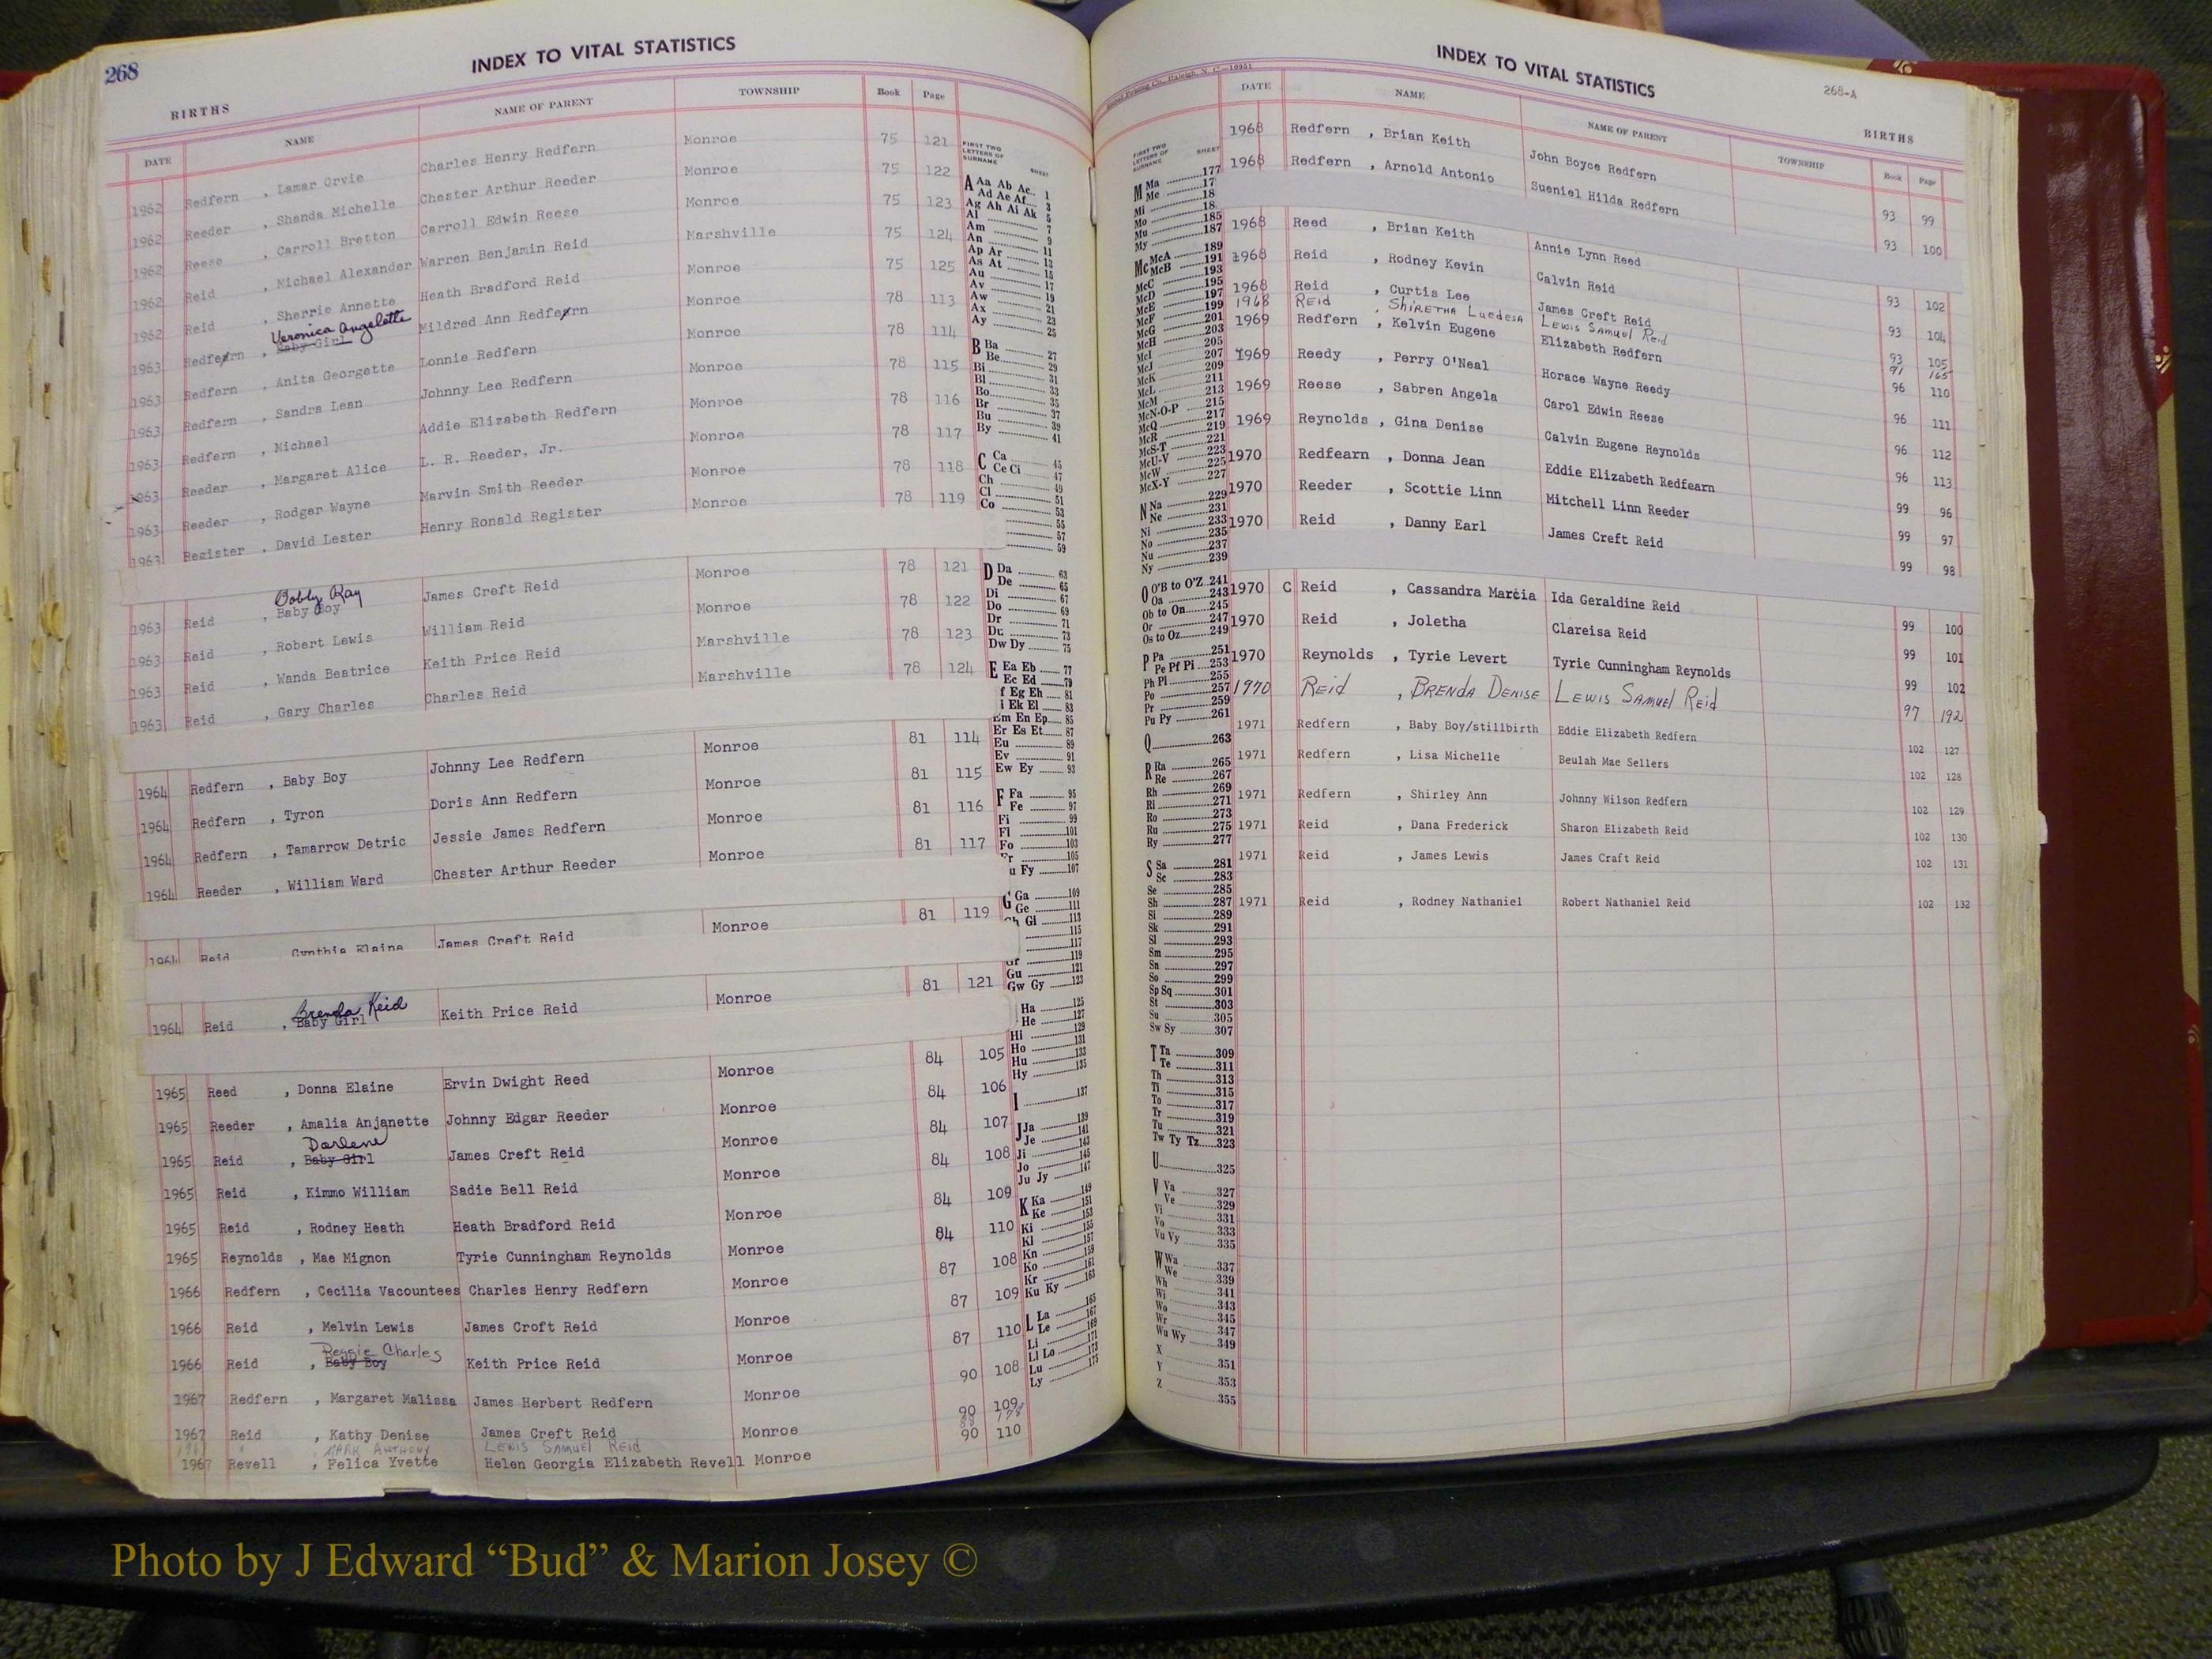 268
INDEX TO VITAL STATISTICS
BIRTHS
DATE NAME NAME OF PARENT TOWNSHIP Book Page
1962 Redfern , Lamar Orvie Charles Henry Redfern Monroe 75 121
1962 Reeder , Shanda Michelle Chester Arthur Reeder Monroe 75 122
1962 Reese , Carroll Bretton Carroll Edwin Reese Monroe 75 123
1962 Reid , Michael Alexander Warren Benjamin Reid Marshville 75 124
1962 Reid , Sherrie Annette Heath Bradford Reid Monroe 75 125
Veronica Angelette
1963 Redfern , Baby Girl Mildred Ann Redfern Monroe 78 113
1963 Redfern , Anita Georgette Lonnie Redfern Monroe 78 114
1963 Redfern , Sandra Lean Johnny Lee Redfern Monroe 78 115
1963 Redfern , Michael Addie Elizabeth Redfern Monroe 78 116
1963 Reeder , Margaret Alice L. R. Reeder, Jr. Monroe 78 117
1963 Reeder , Rodger Wayne Marvin Smith Reeder Monroe 78 118
1963 Register , David Lester Henry Ronald Register Monroe 78 119
Bobby Ray
1963 Reid , Baby Boy James Creft Reid Monroe 78 121
1963 Reid , Robert Lewis William Reid Monroe 78 122
1963 Reid , Wanda Beatrice Keith Price Reid Marshville 78 123
1963 Reid , Gary Charles Charles Reid Marshville 78 124
1964 Redfern , Baby Boy Johnny Lee Redfern Monroe 81 114
1964 Redfern , Tyron Doris Ann Redfern Monroe 81 115
1964 Redfern , Tamarrow Detric Jessie James Redfern Monroe 81 116
1964 Reeder , William Ward Chester Arthur Reeder Monroe 81 117
1964 Reid Cynthia Elaine James Creft Reid Monroe 81 119
Brenda Reid
1964 Reid , Baby Girl Keith Price Reid Monroe 81 121
1965 Reed , Donna Elaine Ervin Dwight Reed Monroe 84 105
1965 Reeder , Amalia Anjanette Johnny Edgar Reeder Monroe 84 106
Darlene
1965 Reid , Baby Girl James Creft Reid Monroe 84 107
1965 Reid , Kimmo William Sadie Bell Reid Monroe 84 108
1965 Reid , Rodney Heath Heath Bradford Reid Monroe 84 109
1965 Reynolds , Mae Mignon Tyrie Cunningham Reynolds Monroe 84 110
1966 Redfern , Cecilia Vacountees Charles Henry Redfern Monroe 87 108
1966 Reid , Melvin Lewis James Croft Reid Monroe 87 109
Reggie Charles
1966 Reid , Baby Boy Keith Price Reid Monroe 87 110
1967 Redfern , Margaret Malissa James Herbert Redfern Monroe 90 108
1967 Reid , Kathy Denise James Creft Reid Monroe 90 109
" , MARK ANTHONY LEWIS SAMUEL REID
1967 Revell , Felica Yvette Helen Georgia Elizabeth Revell Monroe 90 110
FIRST TWO LETTERS OF SURNAME SHEET
A Aa Ab Ac 1
Ad Ae Af 3
Ag Ah Ai Ak 5
Al 7
Am 9
An 11
Ap Ar 13
As At 15
Au 17
Av 19
Aw 21
Ax 23
Ay 25
B Ba 27
Be 29
Bi 31
Bl 33
Bo 35
Br 37
Bu 39
By 41
C Ca 45
Ce Ci 47
Ch 49
Cl 51
Co 53
55
57
59
D Da 63
De 65
Di 67
Do 69
Dr 71
Du 73
Dw Dy 75
E Ea Eb 77
Ec Ed 79
f Eg Eh 81
i Ek El 83
Em En Ep 85
Er Es Et 87
Eu 89
Ev 91
Ew Ey 93
F Fa 95
Fe 97
Fi 99
Fl 101
Fo 103
Fr 105
u Fy 107
G Ga 109
Ge 111
Gh Gl 113
115
117
Gr 119
Gu 121
Gw Gy 123
Ha 125
He 127
Hi 129
Ho 131
Hu 133
Hy 135
I 137
J Ja 139
Je 141
Ji 143
Jo 145
Ju Jy 147
K Ka 149
Ke 151
Ki 153
Kl 155
Kn 157
Ko 159
Kr 161
Ku Ky 163
L La 165
Le 167
Li 169
Ll Lo 171
Lu 173
Ly 175
INDEX TO VITAL STATISTICS
268-A
BIRTHS
DATE NAME NAME OF PARENT TOWNSHIP Book Page
1968 Redfern , Brian Keith John Boyce Redfern 93 99
1968 Redfern , Arnold Antonio Sueniel Hilda Redfern 93 100
1968 Reed , Brian Keith Annie Lynn Reed 93 102
1968 Reid , Rodney Kevin Calvin Reid 93 104
1968 Reid , Curtis Lee James Creft Reid 93 105
1968 REID , SHIRETHA LUEDESA LEWIS SAMUEL REID 91 165
1969 Redfern , Kelvin Eugene Elizabeth Redfern 96 110
1969 Reedy , Perry O'Neal Horace Wayne Reedy 96 111
1969 Reese , Sabren Angela Carol Edwin Reese 96 112
1969 Reynolds , Gina Denise Calvin Eugene Reynolds 96 113
1970 Redfearn , Donna Jean Eddie Elizabeth Redfearn 99 96
1970 Reeder , Scottie Linn Mitchell Linn Reeder 99 97
1970 Reid , Danny Earl James Creft Reid 99 98
1970 C Reid , Cassandra Marcia Ida Geraldine Reid 99 100
1970 Reid , Joletha Clareisa Reid 99 101
1970 Reynolds , Tyrie Levert Tyrie Cunningham Reynolds 99 102
1970 REID , BRENDA DENISE LEWIS SAMUEL REID 97 192
1971 Redfern , Baby Boy/stillbirth Eddie Elizabeth Redfern 102 127
1971 Redfern , Lisa Michelle Beulah Mae Sellers 102 128
1971 Redfern , Shirley Ann Johnny Wilson Redfern 102 129
1971 Reid , Dana Frederick Sharon Elizabeth Reid 102 130
1971 Reid , James Lewis James Craft Reid 102 131
1971 Reid , Rodney Nathaniel Robert Nathaniel Reid 102 132
FIRST TWO LETTERS OF SURNAME SHEET
M Ma 177
Me 17
Mi 18
Mo 18
Mu 185
My 187
Mc McA 189
McB 191
McC 193
McD 195
McE 197
McF 199
McG 201
McH 203
McI 205
McJ 207
McK 209
McL 211
McM 213
McN-O-P 215
McQ 217
McR 219
McS-T 221
McU-V 223
McW 225
McX-Y 227
N Na 229
Ne 231
Ni 233
No 235
Nu 237
Ny 239
O O'B to O'Z 241
Oa 243
Ob to On 245
Or 247
Os to Oz 249
P Pa 251
Pe Pf Pi 253
Ph Pl 255
Po 257
Pr 259
Pu Py 261
Q 263
R Ra 265
Re 267
Rh 269
Ri 271
Ro 273
Ru 275
Ry 277
S Sa 281
Sc 283
Se 285
Sh 287
Si 289
Sk 291
Sl 293
Sm 295
Sn 297
So 299
Sp Sq 301
St 303
Su 305
Sw Sy 307
T Ta 309
Te 311
Th 313
Ti 315
To 317
Tr 319
Tu 321
Tw Ty Tz 323
U 325
V Va 327
Ve 329
Vi 331
Vo 333
Vu Vy 335
W Wa 337
We 339
Wh 341
Wi 343
Wo 345
Wr 347
Wu Wy 349
X 351
Y 353
Z 355
Photo by J Edward “Bud” & Marion Josey ©